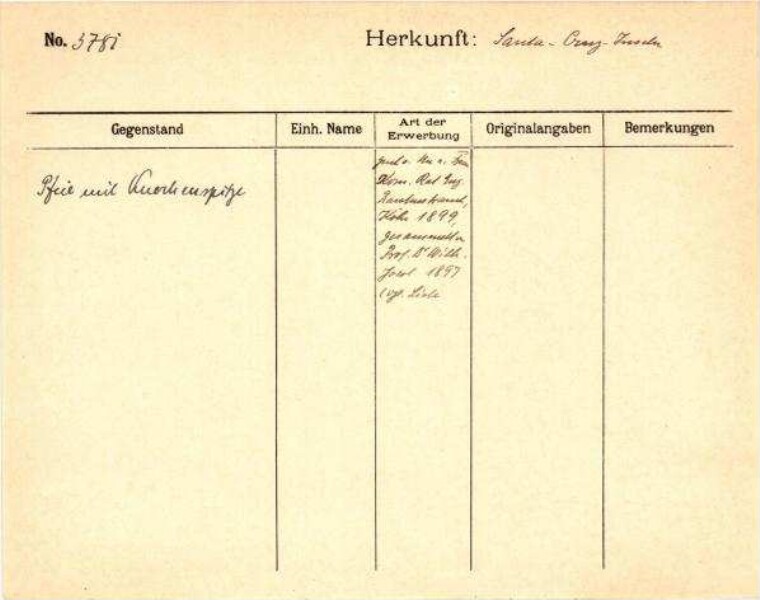 No. 378i Herkunft: Santa-Cruz-Inseln
Gegenstand Einh. Name Art der Erwerbung Originalangaben Bemerkungen
Pfeil mit Knochenspitze
Kom. Rat Eug.
Rautenstrauch,
Köln 1899,
gesammelt v.
Prof. Dr Wilh.
Joest 1897
(vgl. Liste